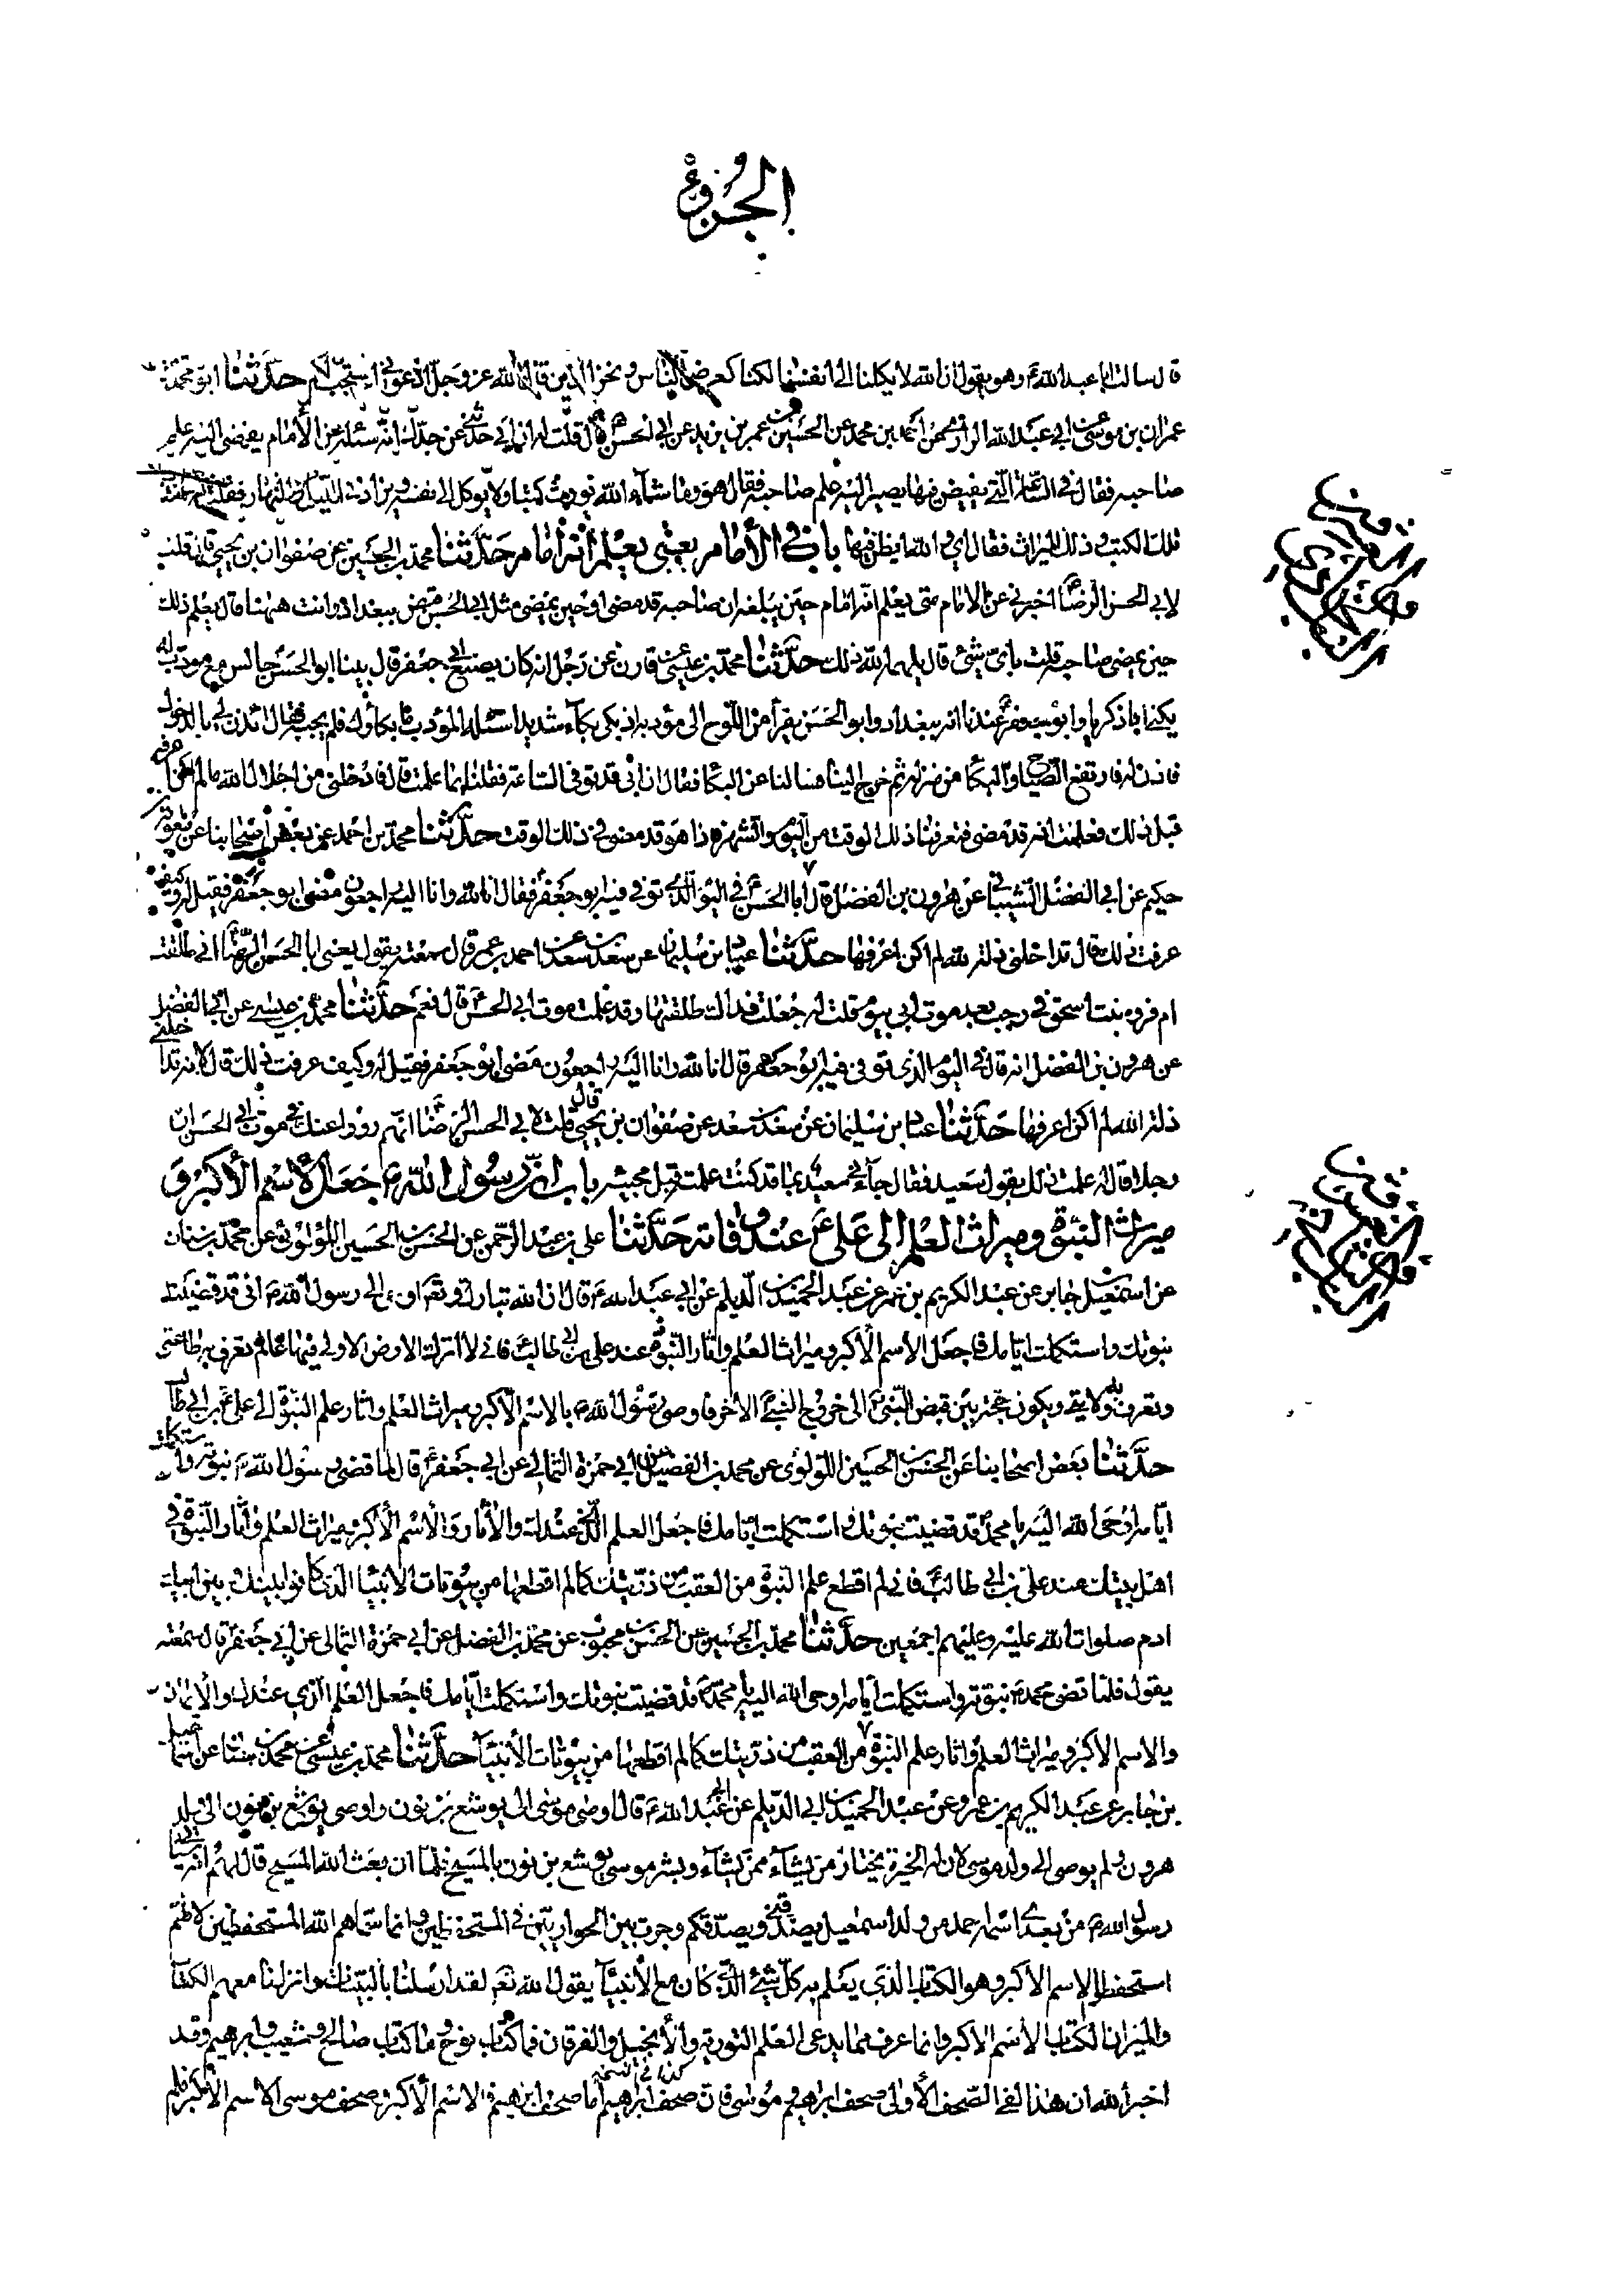 الجزؤ
قال سالت ابا عبد الله ع وهو يقول ان الله لا يكلنا الى انفسنا لكنا كعرض الناس ونحن الذين قال الله عز وجل ادعوني استجب لكم حدّثنا ابو محمد عن
عمران بن موسى عن ابي عبد الله الرازي عن احمد بن محمد عن الحسين بن عمر بن يزيد عن ابي الحسن قال قلت له ان ابي حدثني عن جدك انه سئله عن الأمام يفضى اليه علم
صاحبه فقال في الساعة التي يقبض فيها يصير اليه علم صاحبه فقال هو وما شاء الله تورث كتبا ولا يوكل الى نفسه ويزاد في الليل والنهار فقلت له عندك
تلك الكتب وذلك الميراث فقال اي والله انظر فيها باب في الأمام يعني يعلم أنه أمام حدّثنا محمد بن الحسين عن صفوان بن يحيى قال قلت
لابي الحسن الرضا اخبرني عن الامام متى يعلم انه امام حين يبلغه ان صاحبه قد مضى او حين يمضي مثل ابي الحسن قبض ببغداد وانت ههنا قال يعلم ذلك
حين يمضي صاحبه قلت باي شئ قال يلهمه الله ذلك حدّثنا محمد بن عيسى عن قارن عن رجل انه كان رضيع ابي جعفر قال بينا ابو الحسن جالس مع مودب له
يكنى ابا ذكريا وابو جعفر عندنا انه ببغداد وابو الحسن يقرأ من اللوح الى مؤدبه اذ بكى بكاء شديدا سئله المؤدب ما بكاؤك فلم يجبه فقال ائذن لي بالدخول
فاذن له فارتفع الصياح والبكا من منزله ثم خرج الينا فسالنا عن البكا فقال ان ابي قد توفى الساعة فقلنا بما علمت قال فادخلني من اجلال الله ما لم اكن اعرفه
قبل ذلك فعلمت انه قد مضى فتعرفنا ذلك الوقت من اليوم والشهر فاذا هو قد مضى في ذلك الوقت حدّثنا محمد بن احمد عن بعض اصحابنا عن معوية بن
حكيم عن ابي الفضل الشيباني عن هرون بن الفضل قال رايت ابا الحسن في اليوم الذي توفي فيه ابو جعفر فقال انا لله وانا اليه راجعون مضى ابو جعفر فقيل له وكيف
عرفت ذلك قال تداخلني ذلة لله لم اكن اعرفها حدّثنا عباد بن سليمان عن سعد بن سعد عن احمد بن عمر قال سمعته يقول يعني ابا الحسن الرضا اني طلقت
ام فروه بنت اسحق في رجب بعد موت ابي بيوم قلت له جعلت فداك طلقتها وقد علمت موت ابي الحسن قال نعم حدّثنا محمد بن عيسى عن ابي الفضل
عن هرون بن الفضل انه قال في اليوم الذي توفى فيه ابو جعفر قال انا لله وانا اليه راجعون مضى ابو جعفر فقيل له وكيف عرفت ذلك قال لانه تداخلني
ذلة الله لم اكن اعرفها حدّثنا عباد بن سليمان عن سعد بن سعد عن صفوان بن يحيى قال قلت لابي الحسن الرضا انهم رووا عنك في موت ابي الحسن ان
رجلا قال له علمت ذلك بقول سعيد فقال جاءني سعيد بما قد كنت علمت قبل مجيئه باب ان رسول الله ص جعل الاسم الأكبر و
ميراث النبوة وميراث العلم الى علي ع عند وفاته حدّثنا علي بن عبد الرحمن عن الحسن بن الحسين اللؤلؤي عن محمد بن سنان
عن اسمعيل بن جابر عن عبد الكريم بن عمر عن عبد الحميد بن ابي الديلم عن ابي عبد الله ع قال ان الله تبارك وتع اوحى الى رسول الله ص اني قد قضيت
نبوتك واستكملت ايامك فاجعل الاسم الأكبر وميراث العلم واثار النبوة عند علي بن ابي طالب فاني لا اترك الارض الا ولي فيها عالم تعرف به طاعتي
وتعرف به ولايتي ويكون حجة بين قبض النبي الى خروج النبي الاخر فاوصى رسول الله ص بالاسم الأكبر وميراث العلم واثار علم النبوة الى علي بن ابي طالب
حدّثنا بعض اصحابنا عن الحسن بن الحسين اللؤلؤي عن محمد بن الفضيل عن ابي حمزة الثمالي عن ابي جعفر قال لما قضى رسول الله ص نبوته واستكملت
ايامه اوحى الله اليه يا محمد قد قضيت نبوتك واستكملت ايامك فاجعل العلم الذي عندك والأثار والأسم الأكبر وميراث العلم واثار النبوة في
اهل بيتك عند علي بن ابي طالب فاني لم اقطع علم النبوة من العقب من ذريتك كما لم اقطعها من بيوتات الانبيا الذين كانوا بينك وبين ابيك
ادم صلوات الله عليه وعليهم اجمعين حدّثنا محمد بن الحسين عن الحسن بن محبوب عن محمد بن الفضل عن ابي حمزة الثمالي عن ابي جعفر قال سمعته
يقول فلما قضى محمد ص نبوته واستكملت ايامه اوحى الله اليه يا محمد قد قضيت نبوتك واستكملت ايامك فاجعل العلم الذي عندك والأيمان
والاسم الاكبر وميراث العلم واثار علم النبوة من العقب من ذريتك كما لم اقطعها من بيوتات الأنبيآ حدّثنا محمد بن عيسى عن محمد بن سنان عن اسمعيل
بن جابر عن عبد الكريم بن عمرو عن عبد الحميد بن ابي الديلم عن ابي عبد الله ع قال اوصى موسى الى يوشع بن نون واوصى يوشع بن نون الى ولد
هرون ولم يوصى الى ولد موسى لان له الخيرة يختار من يشاء ممن يشاء وبشر موسى يوشع بن نون بالمسيح فلما ان بعث الله المسيح قال لهم انه سياتي
رسول الله ص من بعدي اسمه احمد من ولد اسمعيل يصدقني ويصدقكم وجرت بين الحواريين في المستحفظين وانما سماهم الله المستحفظين لانهم
استحفظوا الاسم الأكبر وهو الكتاب الذي يعلم به كل شئ الذي كان مع الأنبيآ يقول الله تع لقد ارسلنا بالبينات وانزلنا معهم الكتاب
والميزان الكتاب الأسم الاكبر وانما عرف مما يدعى العلم التورية والأنجيل والفرقان فما كتاب نوح وما كتاب صالح وشعيب وابرهيم وقد
كذا في النسخة
اخبر الله ان هذا لفي الصحف الأولى صحف ابراهيم وموسى فاين صحف ابراهيم اما صحف ابرهيم فالاسم الأكبر وصحف موسى الاسم الأكبر فلم